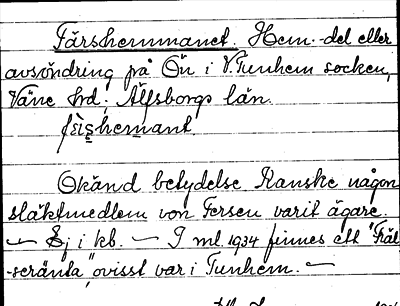 Färshemmanet. Hem.-del eller
avsöndring på Ön i V. Tunhem socken,
Väne hrd, Älfsborgs län.
Okänd betydelse Kanske någon
släktmedlem von Fersen varit ägare.
— Ej i kb. — I ml. 1934 finnes ett "Fräl-
-seränta", ovisst var i Tunhem. —